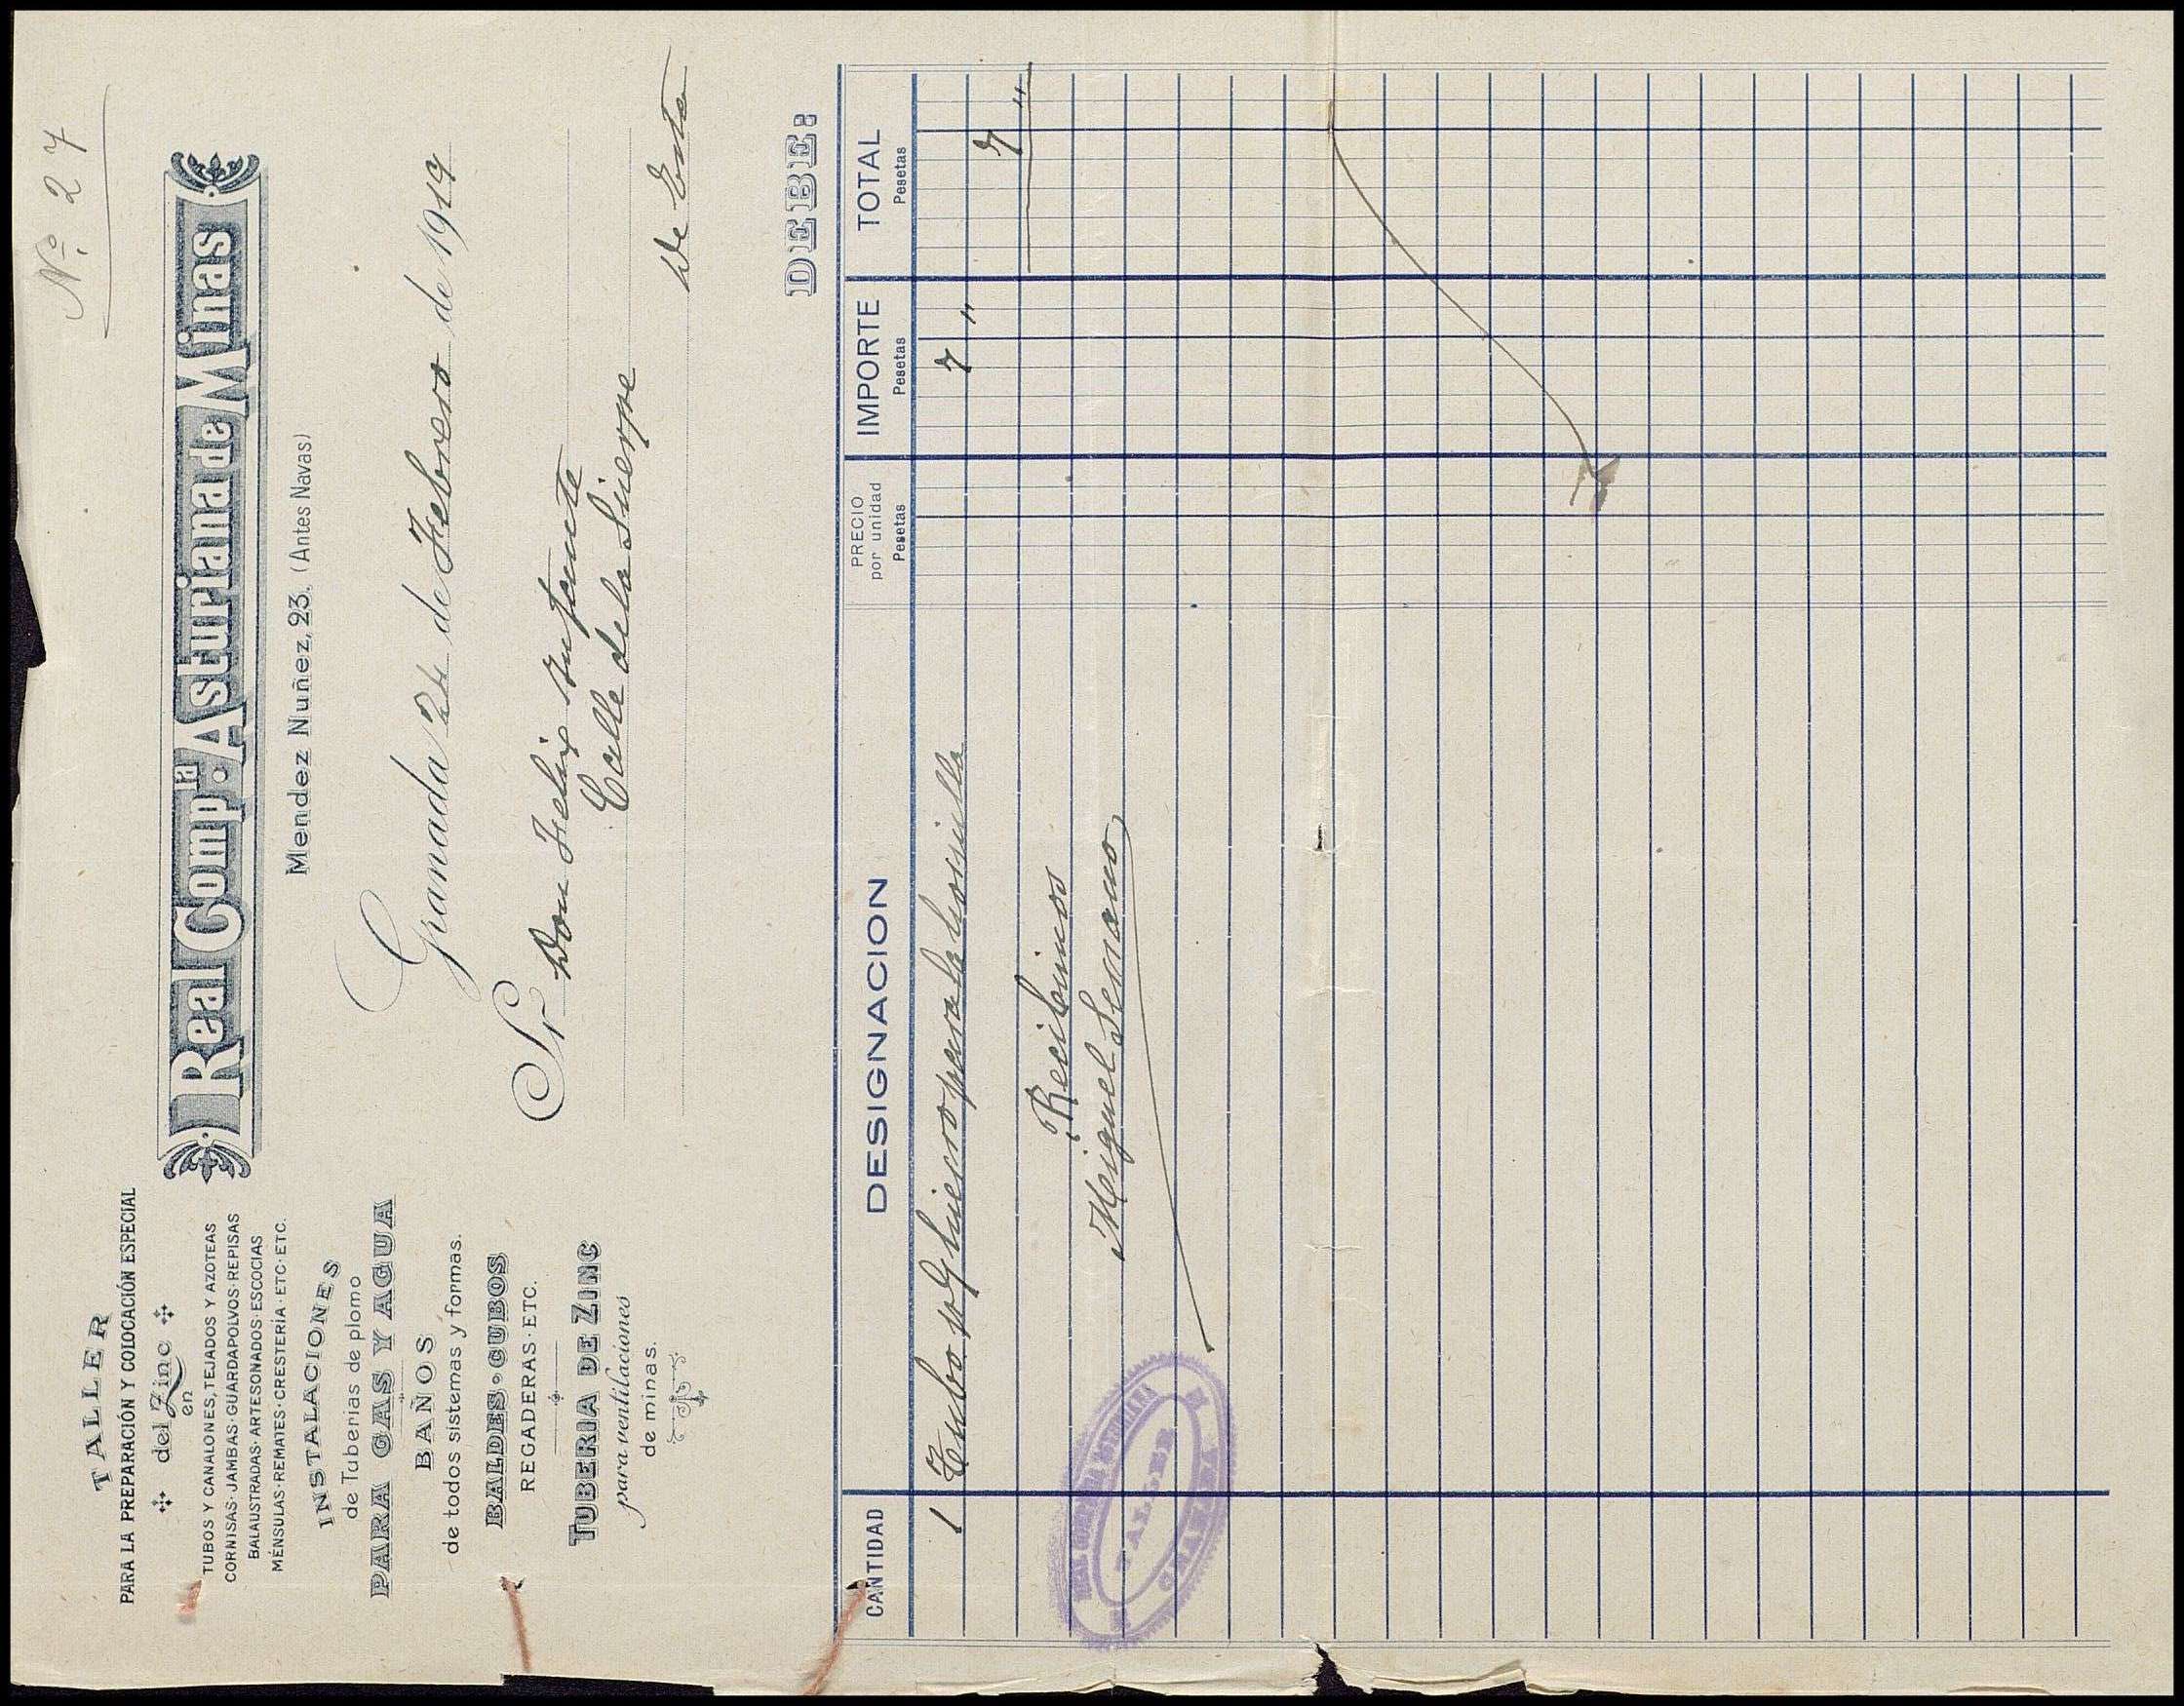 Nº 27
TALLER
PARA LA PREPARACIÓN Y COLOCACIÓN ESPECIAL
del Zinc
en
TUBOS Y CANALONES, TEJADOS Y AZOTEAS
CORNISAS · JAMBAS · GUARDAPOLVOS · REPISAS
BALAUSTRADAS · ARTESONADOS · ESCOCIAS
MÉNSULAS · REMATES · CRESTERÍA · ETC · ETC.
INSTALACIONES
de Tuberias de plomo
PARA GAS Y AGUA
BAÑOS
de todos sistemas y formas.
BALDES · CUBOS
REGADERAS · ETC.
TUBERIA DE ZINC
para ventilaciones
de minas.
Real Compª. Asturiana de Minas
Mendez Nuñez, 23. (Antes Navas)
Granada 24 de Febrero de 1919
Sr. Don Felix Infante
Calle de la Sierpe
De Esta
DEBE:
CANTIDAD DESIGNACION PRECIO por unidad Pesetas IMPORTE Pesetas TOTAL Pesetas
1 Tubo para la 7 "
7 "
Recibimos
Miguel Serrano
REAL COMPAÑIA ASTURIANA
TALLER
GRANADA